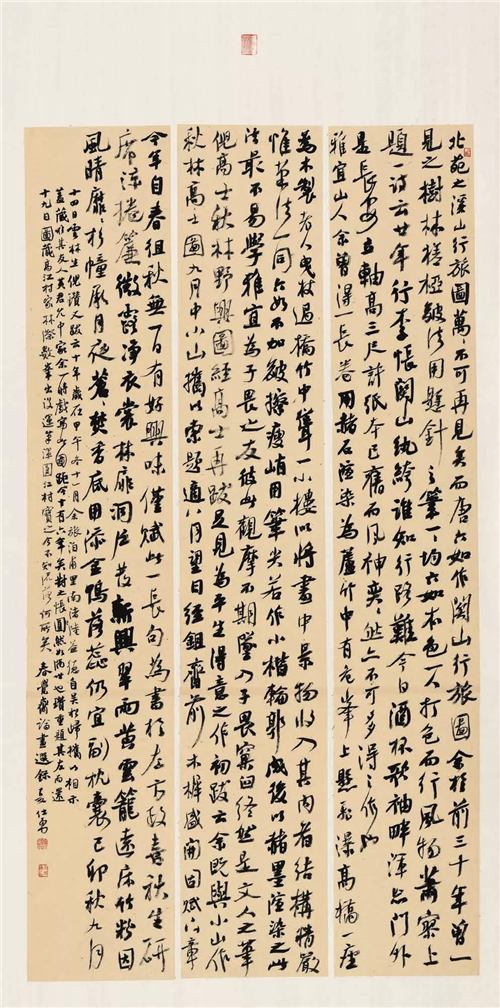 北苑之溪山行旅圖萬不可再見矣而唐六如作關山行旅圖余於前三十年曾一
見之樹林槎枒皴法用懸針之筆一一均六如本色一人打包而行風物蕭索上
題一詩云廿年行李悵關山紈絝誰知行路難今日酒杯歌袖畔渾忘門外
是長安立軸高三尺許紙本已舊而風神奕奕然亦不可多得之作也
雅宜山人余曾得一長卷用赭石渲染為蘆竹中有危峰上懸飛瀑高橋一座
為木製老人曳杖過橋竹中聳一小樓以將畫中景物收入其內者結構精嚴
惟筆法一同六如不加皴擦瘦峭用筆尖若作小楷輪郭成後以豬墨渲染之此
法最不易學雅宜為子畏之友彼此觀摩不期墜入子畏窠臼終然是文人之筆
倪高士秋林野興圖經高士再跋足見為平生得意之作初跋云余既與小山作
秋林高士圖九月中小山攜以索題適八月望日經鉏齋前木樨盛開因賦六章
今年自春徂秋無一日有好興味僅賦此一長句為書於左方政喜秋生研
席涼捲簾微露淨衣裳林扉洞戶發新興翠雨黃雲籠遠床竹粉因
風晴靡靡杉幢承月夜蒼蒼焚香底用添金鴨落蕊仍宜副枕囊己卯秋九月
十四日雲林生倪瓚又跋云十年歲在甲午冬十一月余旅泊甫里南渚陸益德自吳松歸攜以相示
蓋藏於其友人黃君允中家余一時戲寫此圖距今十有六年矣對之悵然如隔世也瓚重題其左而還
十九日圖藏高江村家林際數筆出沒江村寶之今不知流落何所矣 春覺齋論畫選錄